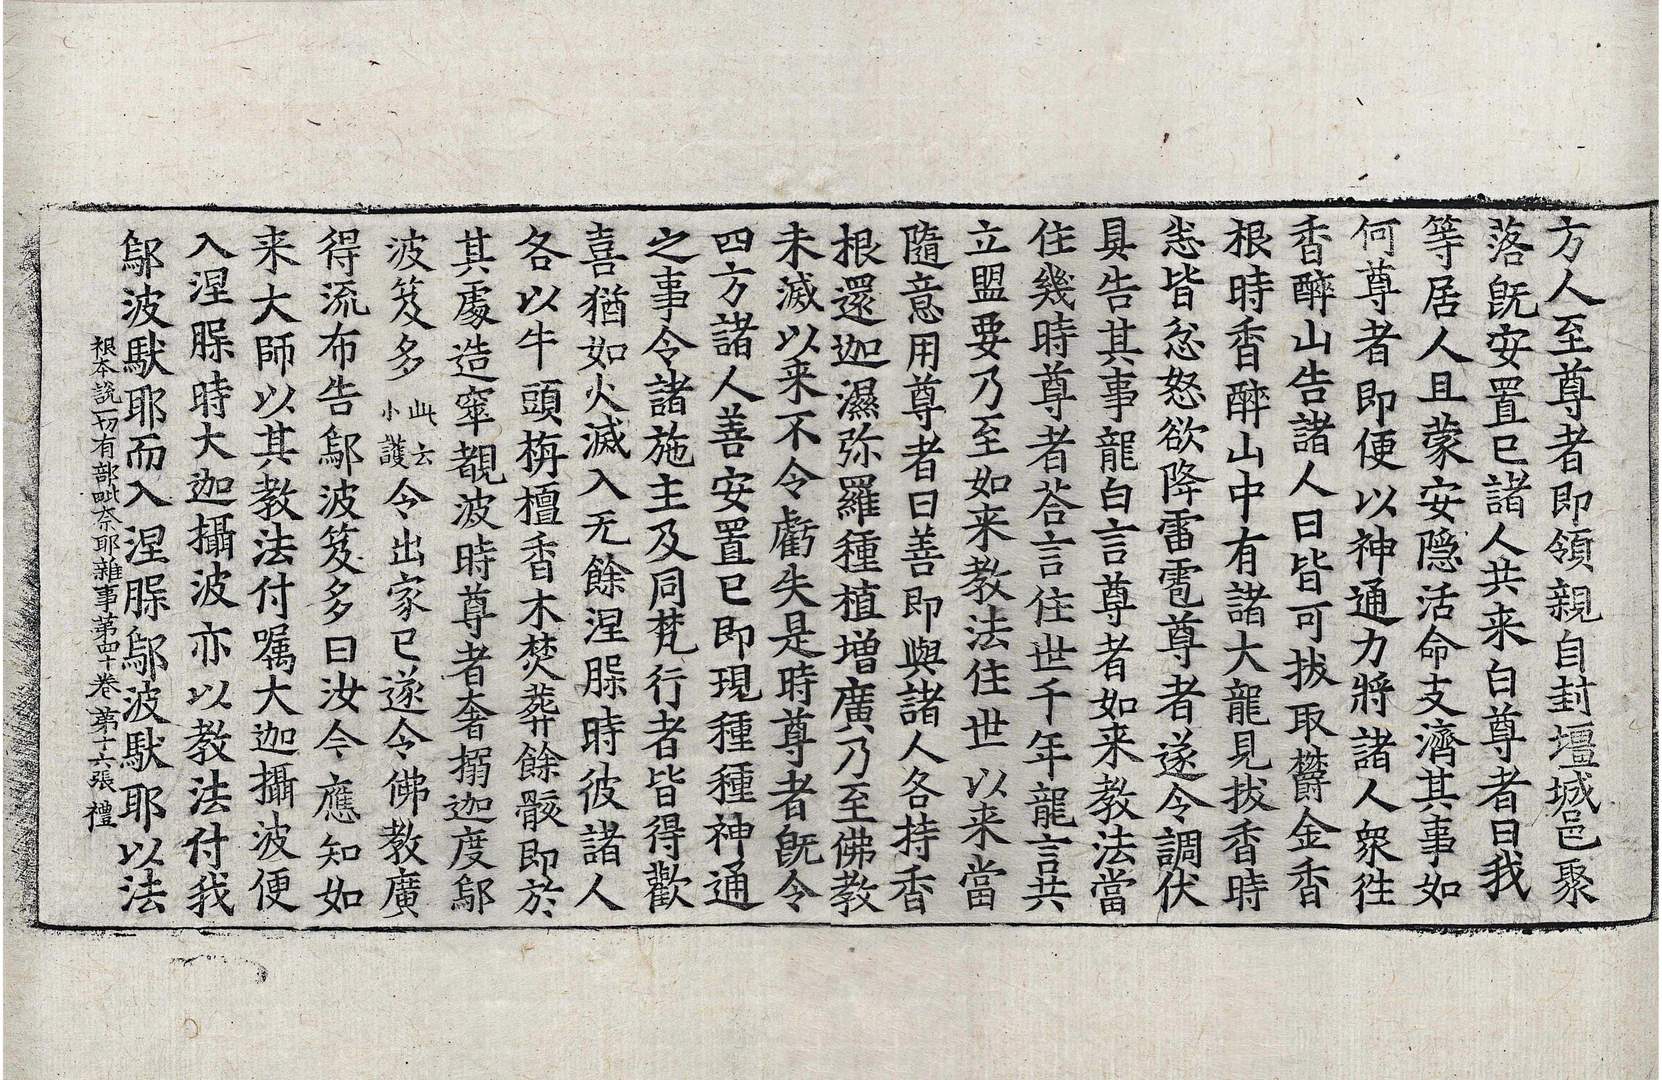 方人至尊者即領親自封壃城邑聚
落旣安置已諸人共来白尊者曰我
等居人且蒙安隠活命支濟其事如
何尊者即便以神通力將諸人衆往
香醉山告諸人曰皆可拔取欝金香
根時香醉山中有諸大龍見拔香時
悉皆忿怒欲降雷雹尊者遂令調伏
具告其事龍白言尊者如来教法當
住幾時尊者荅言住世千年龍言共
立盟要乃至如来教法住世以来當
隨意用尊者曰善即與諸人各持香
根還迦濕弥羅種植增廣乃至佛教
未滅以来不令虧失是時尊者旣令
四方諸人善安置已即現種種神通
之事令諸施主及同梵行者皆得歡
喜猶如火滅入无餘涅槃時彼諸人
各以牛頭栴檀香木焚葬餘骸即於
其處造窣覩波時尊者奢搦迦度鄔
波笈多此云小護令出家已遂令佛教廣
得流布告鄔波笈多曰汝今應知如
来大師以其教法付嘱大迦攝波便
入涅槃時大迦攝波亦以教法付我
鄔波馱耶而入涅槃鄔波馱耶以法
根本說一切有部毗奈耶雜事第四十卷 第十六張 禮